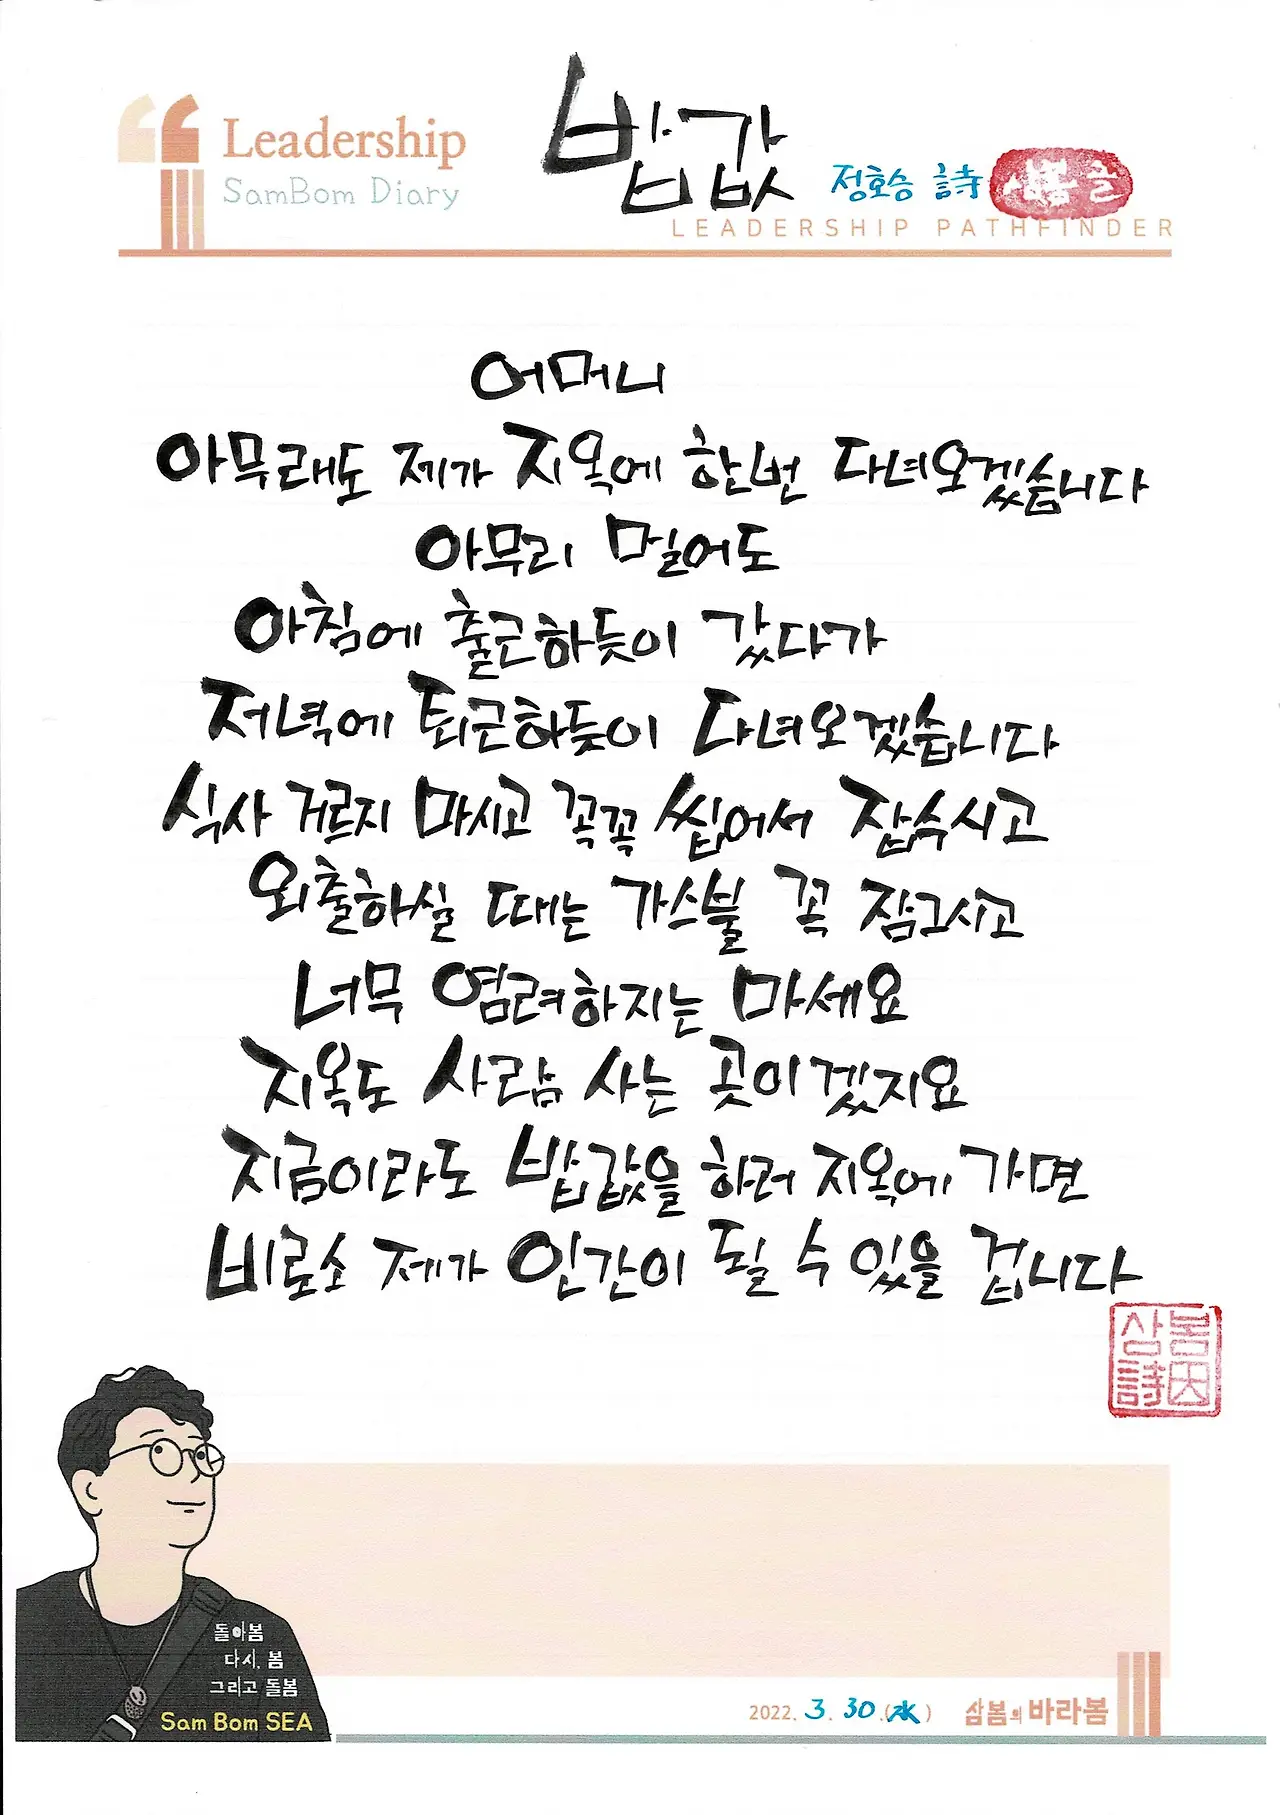 Leadership
SamBom Diary
밥값
정호승 詩
LEADERSHIP PATHFINDER
어머니
아무래도 제가 지옥에 한번 다녀오겠습니다
아무리 멀어도
아침에 출근하듯이 갔다가
저녁에 퇴근하듯이 다녀오겠습니다
식사 거르지 마시고 꼭꼭 씹어서 잡수시고
외출하실 때는 가스불 꼭 잠그시고
너무 염려하지는 마세요
지옥도 사람 사는 곳이겠지요
지금이라도 밥값을 하러 지옥에 가면
비로소 제가 인간이 될 수 있을 겁니다
삼봄
詩因
돌아봄
다시, 봄
그리고 돌봄
Sam Bom SEA
2022. 3. 30.(水)
삼봄의 바라봄